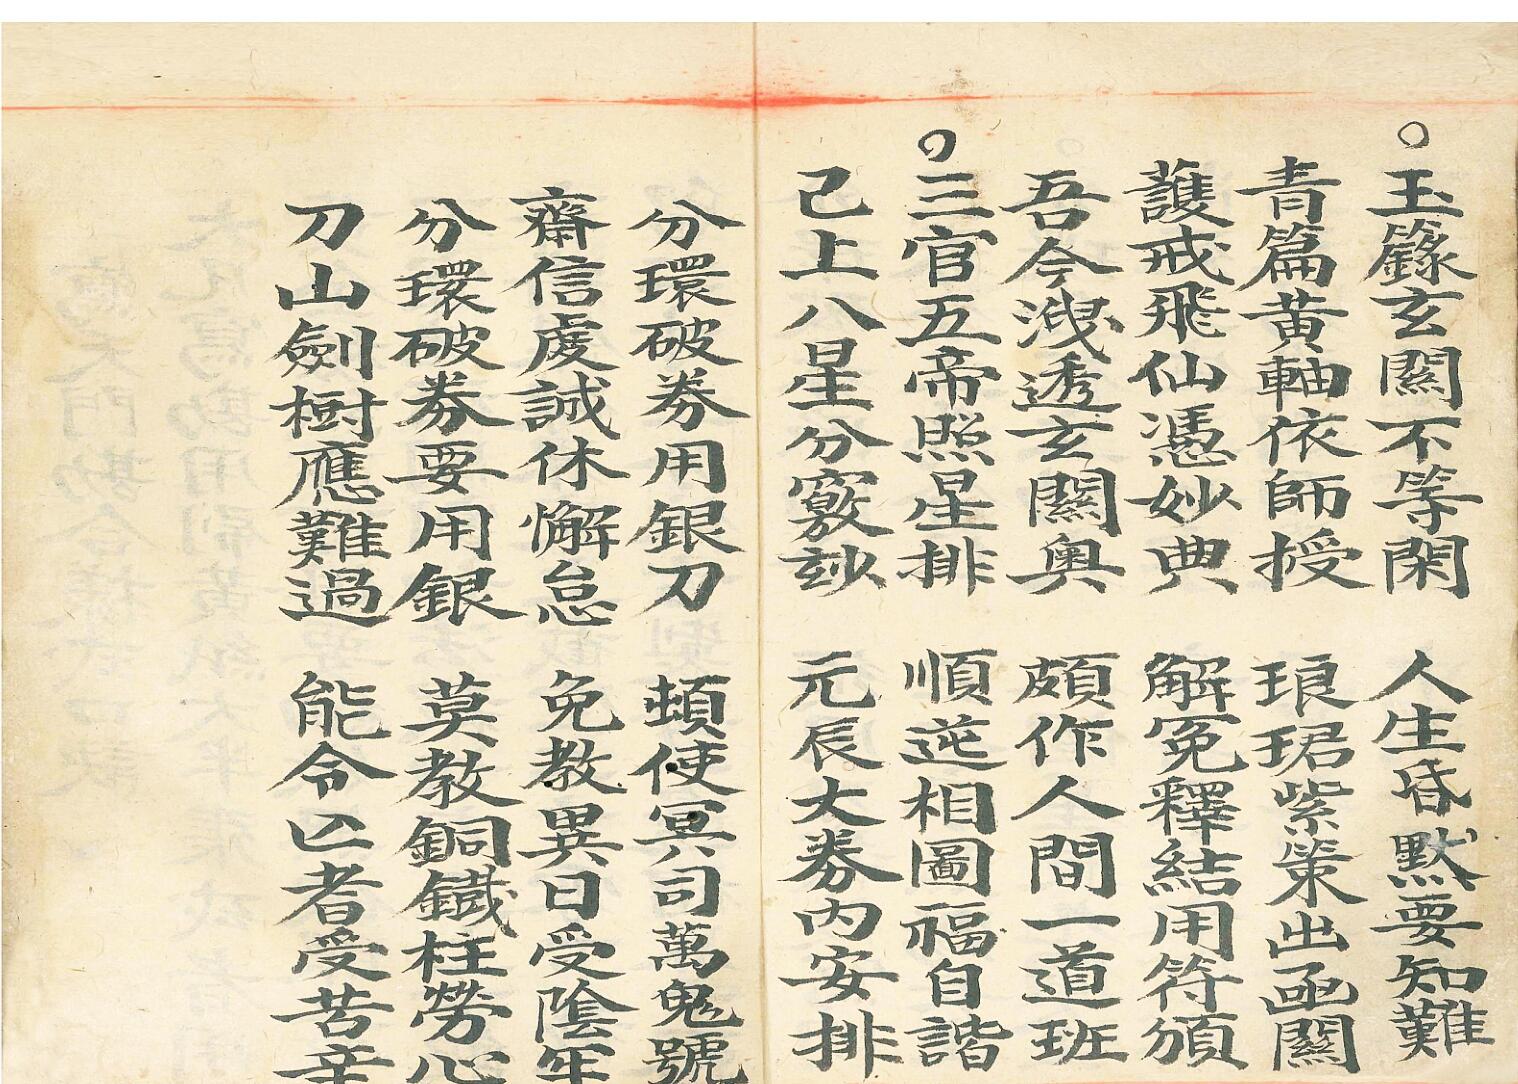 ○玉籙玄關不等閑 人生昏默要知難
青篇黃軸依師授 琅珺紫策出函關
護戒飛仙憑妙典 解冤釋結用符頒
吾今洩透玄關奧 頗作人間一道班
○三官五帝照星排 順逆相圖福自諧
己上八星分竅玅 元辰大劵內安排
分環破劵用銀刀 頓使冥司萬鬼號
齋信虔誠休懈怠 免教異日受陰牢
分環破劵要用銀 莫教銅鐵柱勞心
刀山劍樹應難過 能令亾者受苦辛